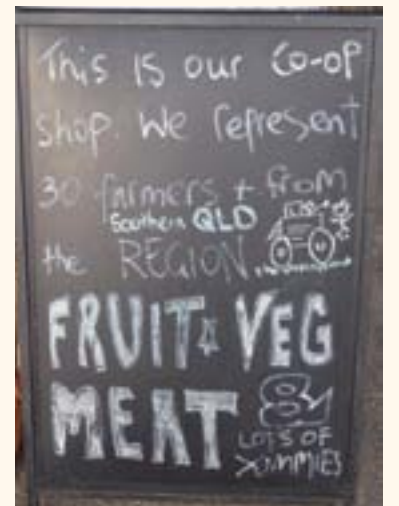 This is our Co-op
shop. We represent
30 farmers + from
Southern QLD
the REGION.
FRUIT & VEG
MEAT
LOTS OF
YUMMIES